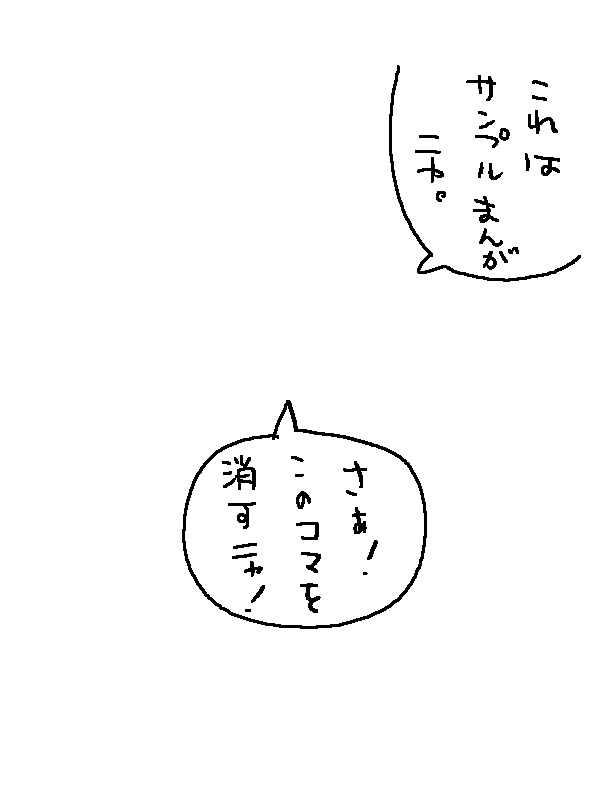 これは
サンプルまんが
ニャ。
さぁ!
このコマを
消すニャ!